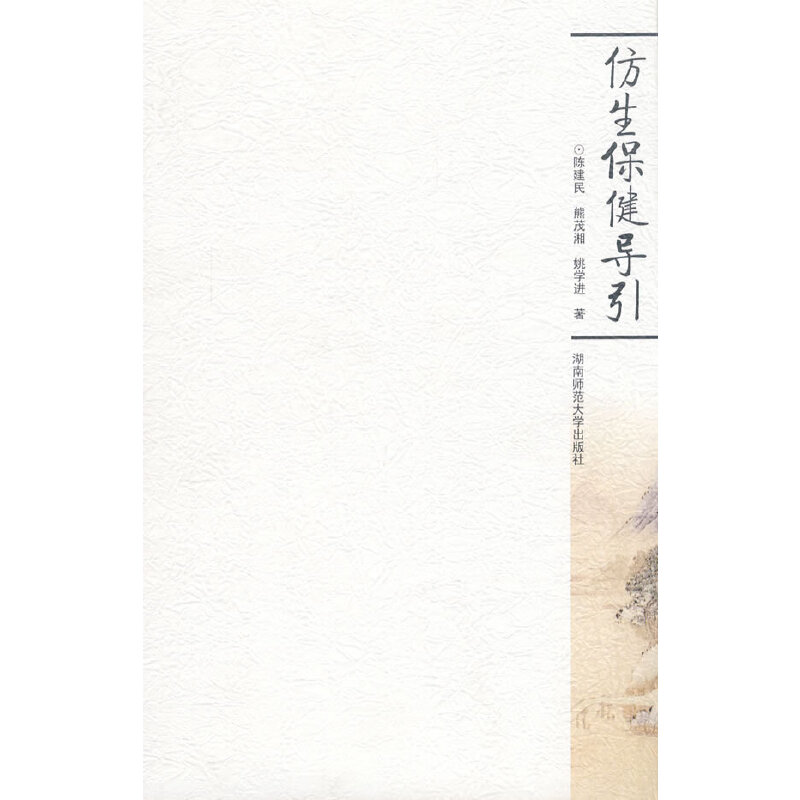 仿生保健导引
⊙陈建民 熊茂湘 姚学进 著
湖南师范大学出版社